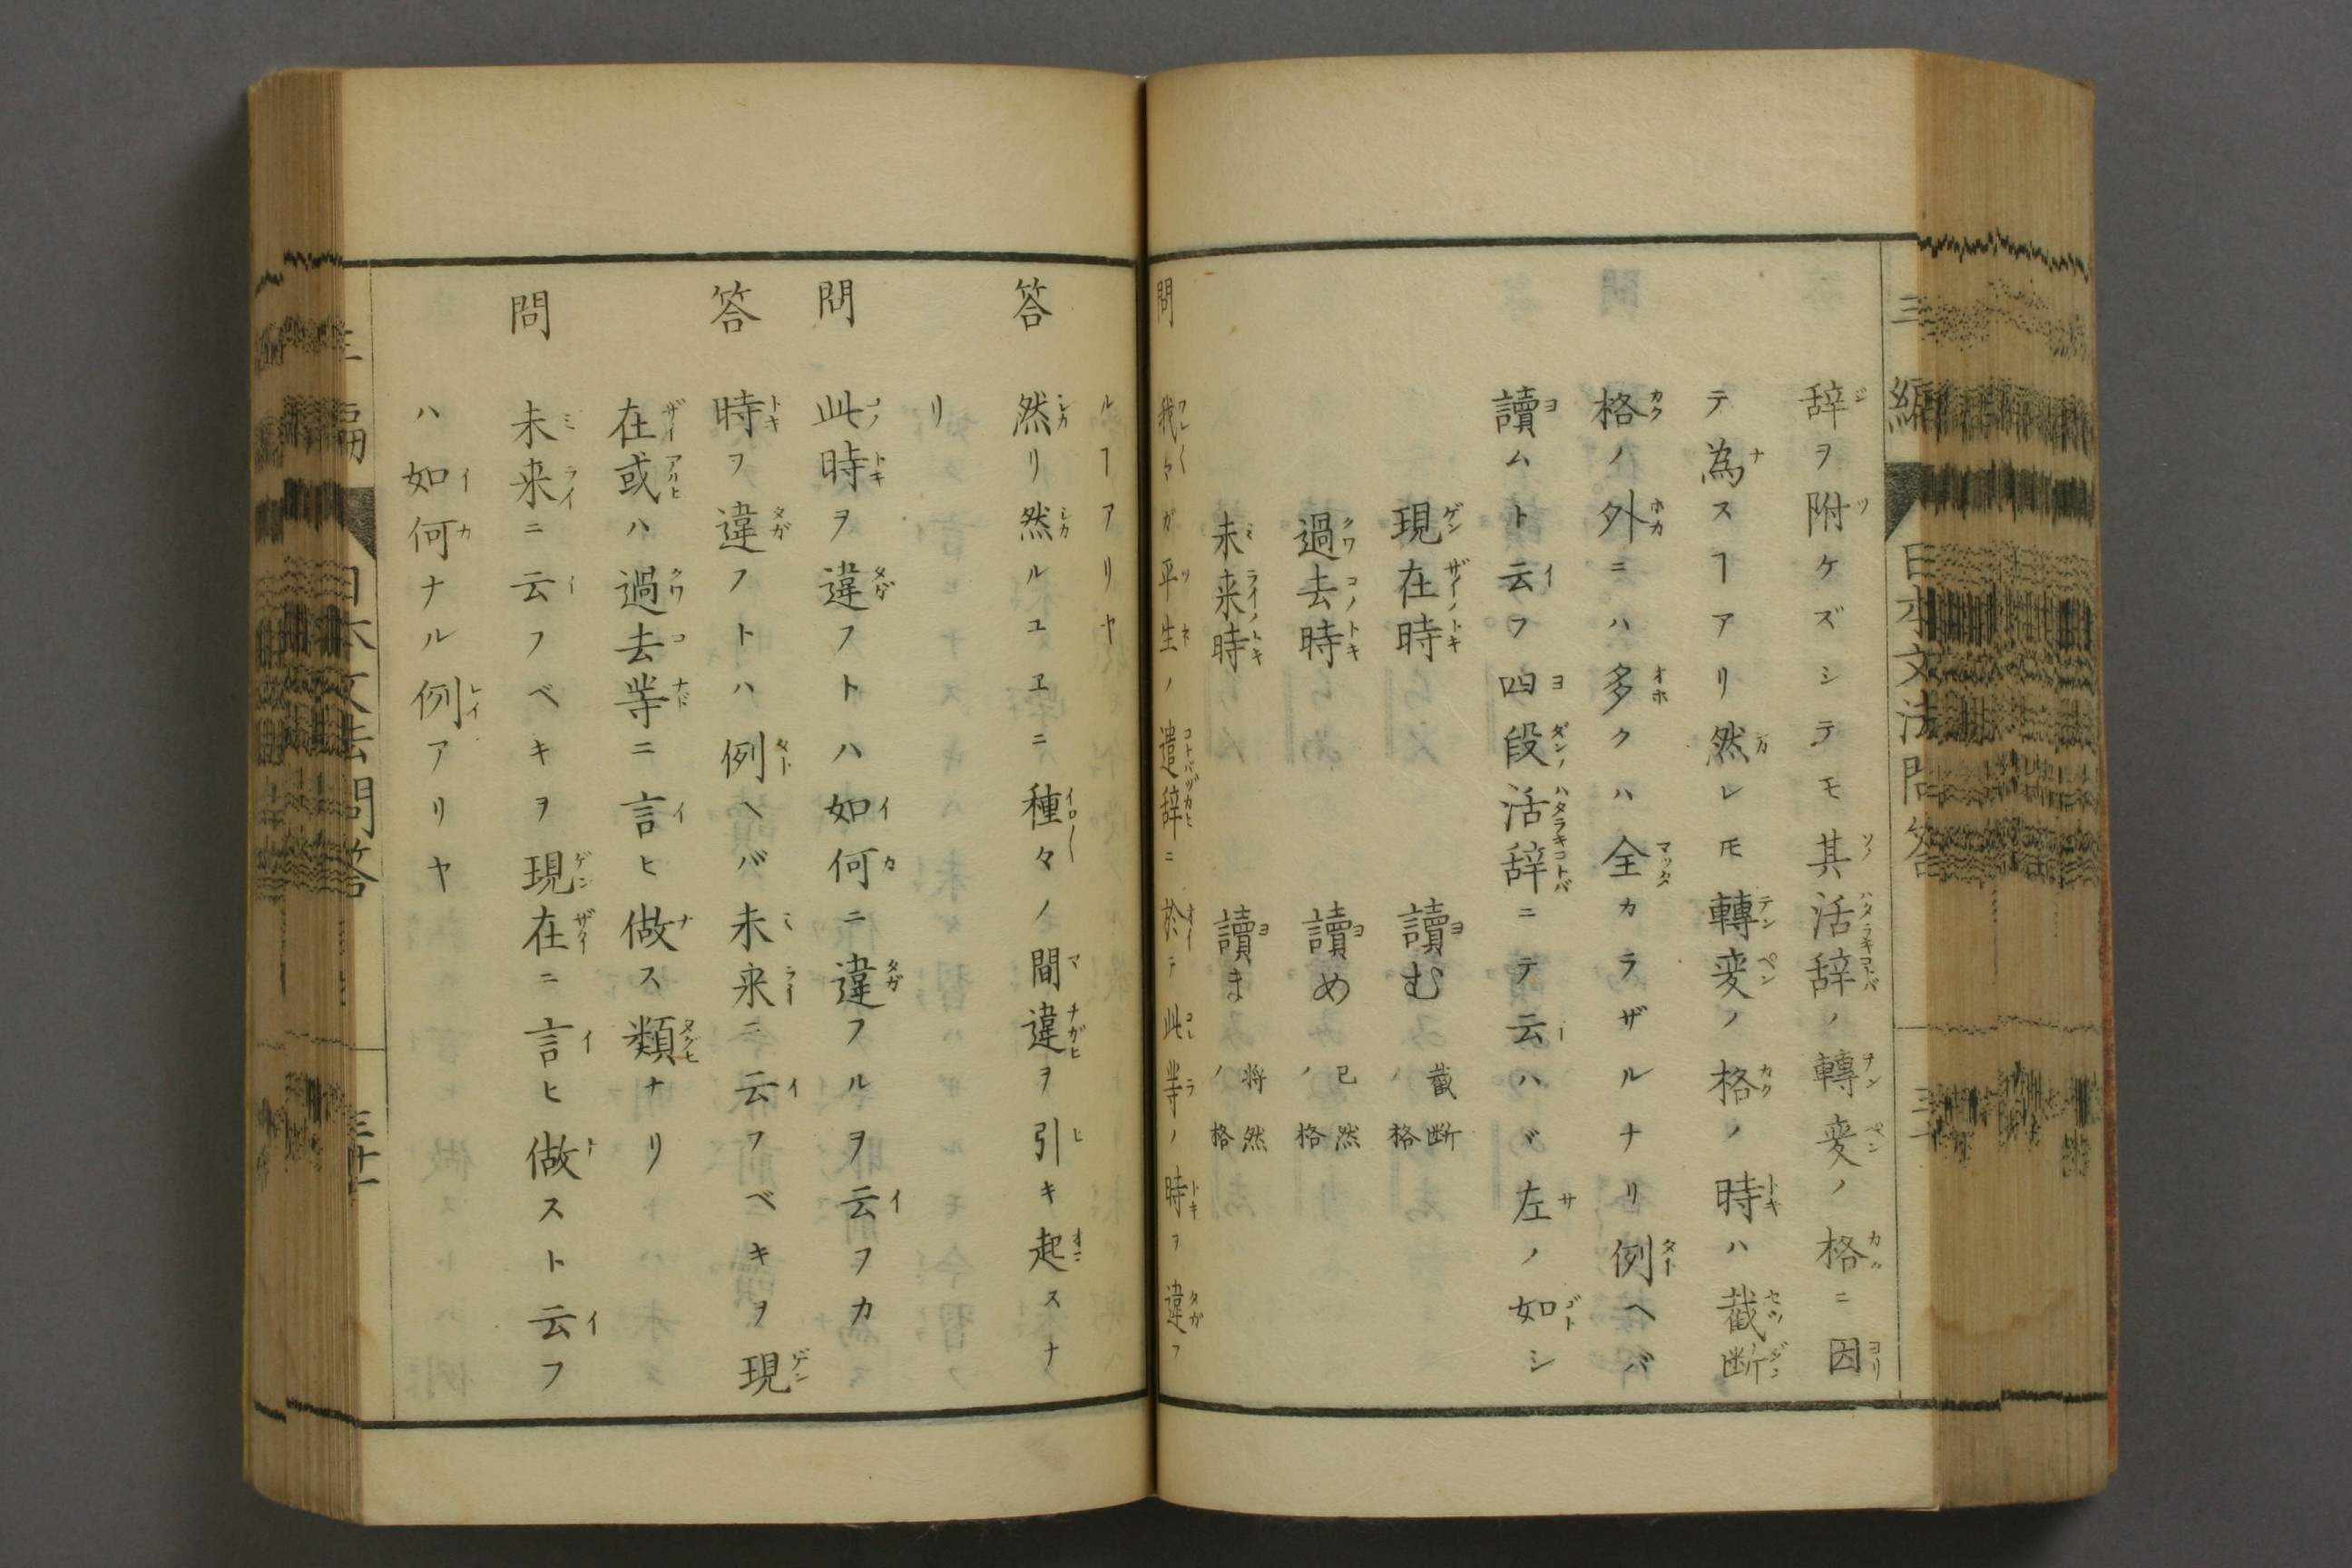 三編 日本文法問答
辞ヲ附ケズシテモ其活辞ノ轉変ノ格ニ因
テ為スヿアリ然レ𪜈轉変ノ格ノ時ハ截断
格ノ外ニハ多クハ全カラザルナリ例ヘバ
讀ムト云フ四段活辞ニテ云ハヾ左ノ如シ
現在時 讀む 截断格
過去時 讀め 已然ノ格
未来時 讀ま 将然ノ格
問 我々ガ平生ノ遣辞ニ於テ此等ノ時ヲ違フ
ルヿアリヤ
答 然リ然ルユヱニ種々ノ間違ヲ引キ起スナ
リ
問 此時ヲ違フトハ如何ニ違フルヲ云ヲカ
答 時ヲ違フトハ例ヘバ未来ニ云フベキヲ現
在或ハ過去等ニ言ヒ做ス類ナリ
問 未来ニ云フベキヲ現在ニ言ヒ做スト云フ
ハ如何ナル例アリヤ
日本文法問答 三十一